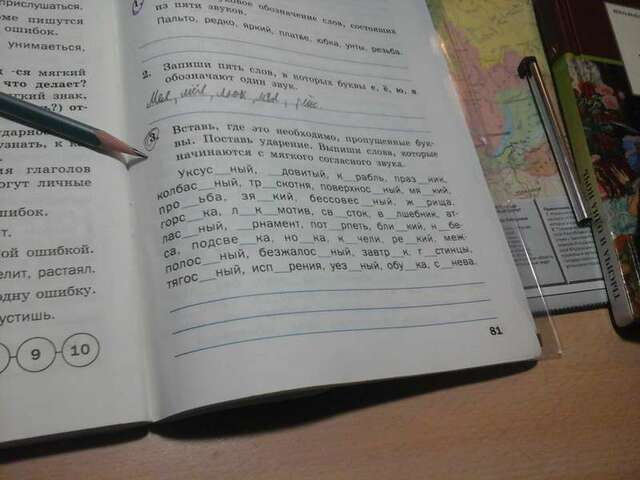 прислушаться.
ме пишутся
ошибок.
унимаеться,
-ся мягкий
что делает?
ягкий знак.
ть?) от-
ударно
узнать, к ка
ия глаголов
огут личные
шибок.
т.
ой ошибкой.
елит, растаял.
одну ошибку.
устишь.
9 10
обозначение слов, состоящих
из пяти звуков.
Пальто, редко, яркий, платье, юбка, унты, резьба.
2. Запиши пять слов, в которых буквы е, ё, ю, я
обозначают один звук.
3. Вставь, где это необходимо, пропущенные бук-
вы. Поставь ударение. Выпиши слова, которые
начинаются с мягкого согласного звука.
Уксус__ный, __довитый, к__рабль, праз__ник,
колбас__ный, тр__скотня, поверхнос__ный, мя__кий,
про__ьба, зя__кий, бессовес__ный, ж__рища,
горс__ка, л__к__мотив, св__сток, в__лшебник, ат-
лас__ный, __рнамент, пот__рпеть, бли__кий, н__бе-
са, подсве__ка, но__ка, к__чели, ре__кий, меж-
полос__ный, безжалос__ный, завтр__к, г__стинцы,
тягос__ный, исп__рения, уез__ный, обу__ка, с__нева.
81